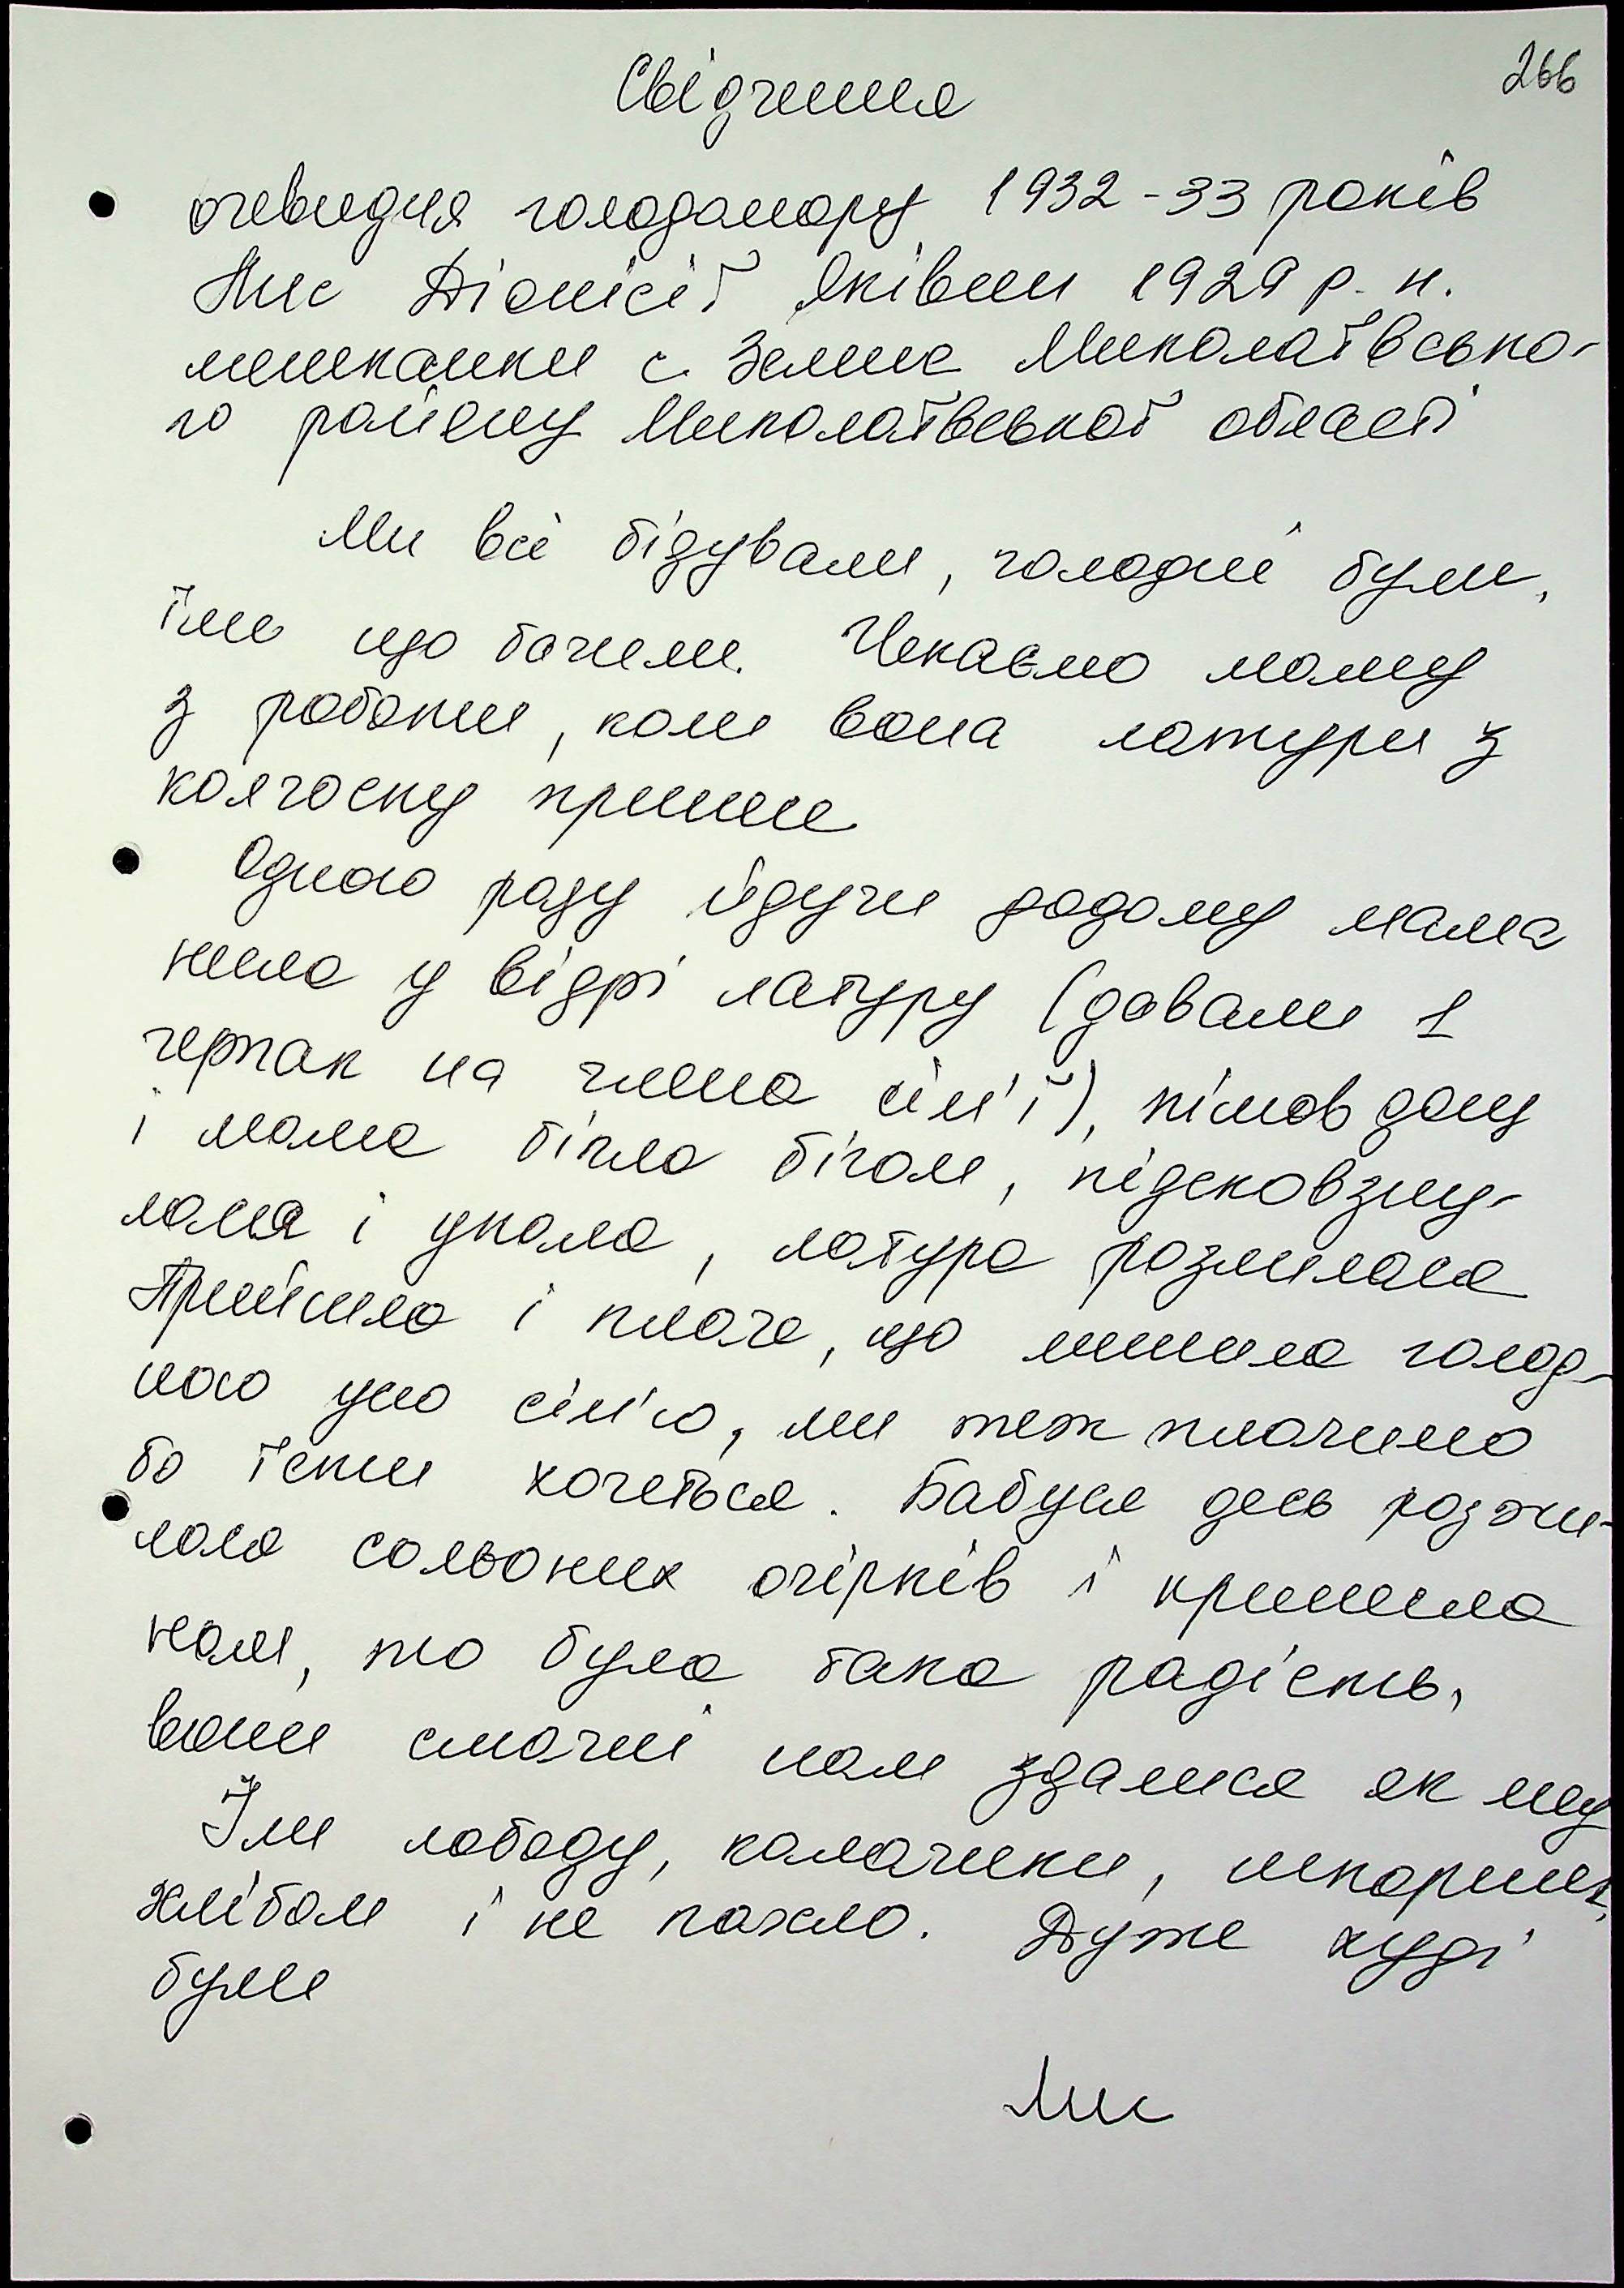 266
Свідчення
очевидця голодомору 1932-33 років
Лис Діонісії Яківни 1929 р. н.
мешканки с. Зелене Миколаївсько-
го району Миколаївської області
Ми всі бідували, голодні були,
їли що бачили. Чекаємо маму
з роботи, коли вона латури з
колгоспу принесе
Одного разу йдучи додому мама
несла у відрі латуру (давали 1
черпак на члена сім'ї), пішов дощ
і мама бігла бігом, підсковзну-
лася і упала, латура розлилася
Прийшла і плаче, що лишила голод-
ною усю сім'ю, ми теж плачемо
бо їсти хочеться. Бабуся десь розжи-
лася сольоних огірків і принесла
нам, то була така радість,
вони смачні нам здалися як мед
Їли лободу, калачики, шкорини,
хлібом і не пахло. Дуже худі
були
Лис